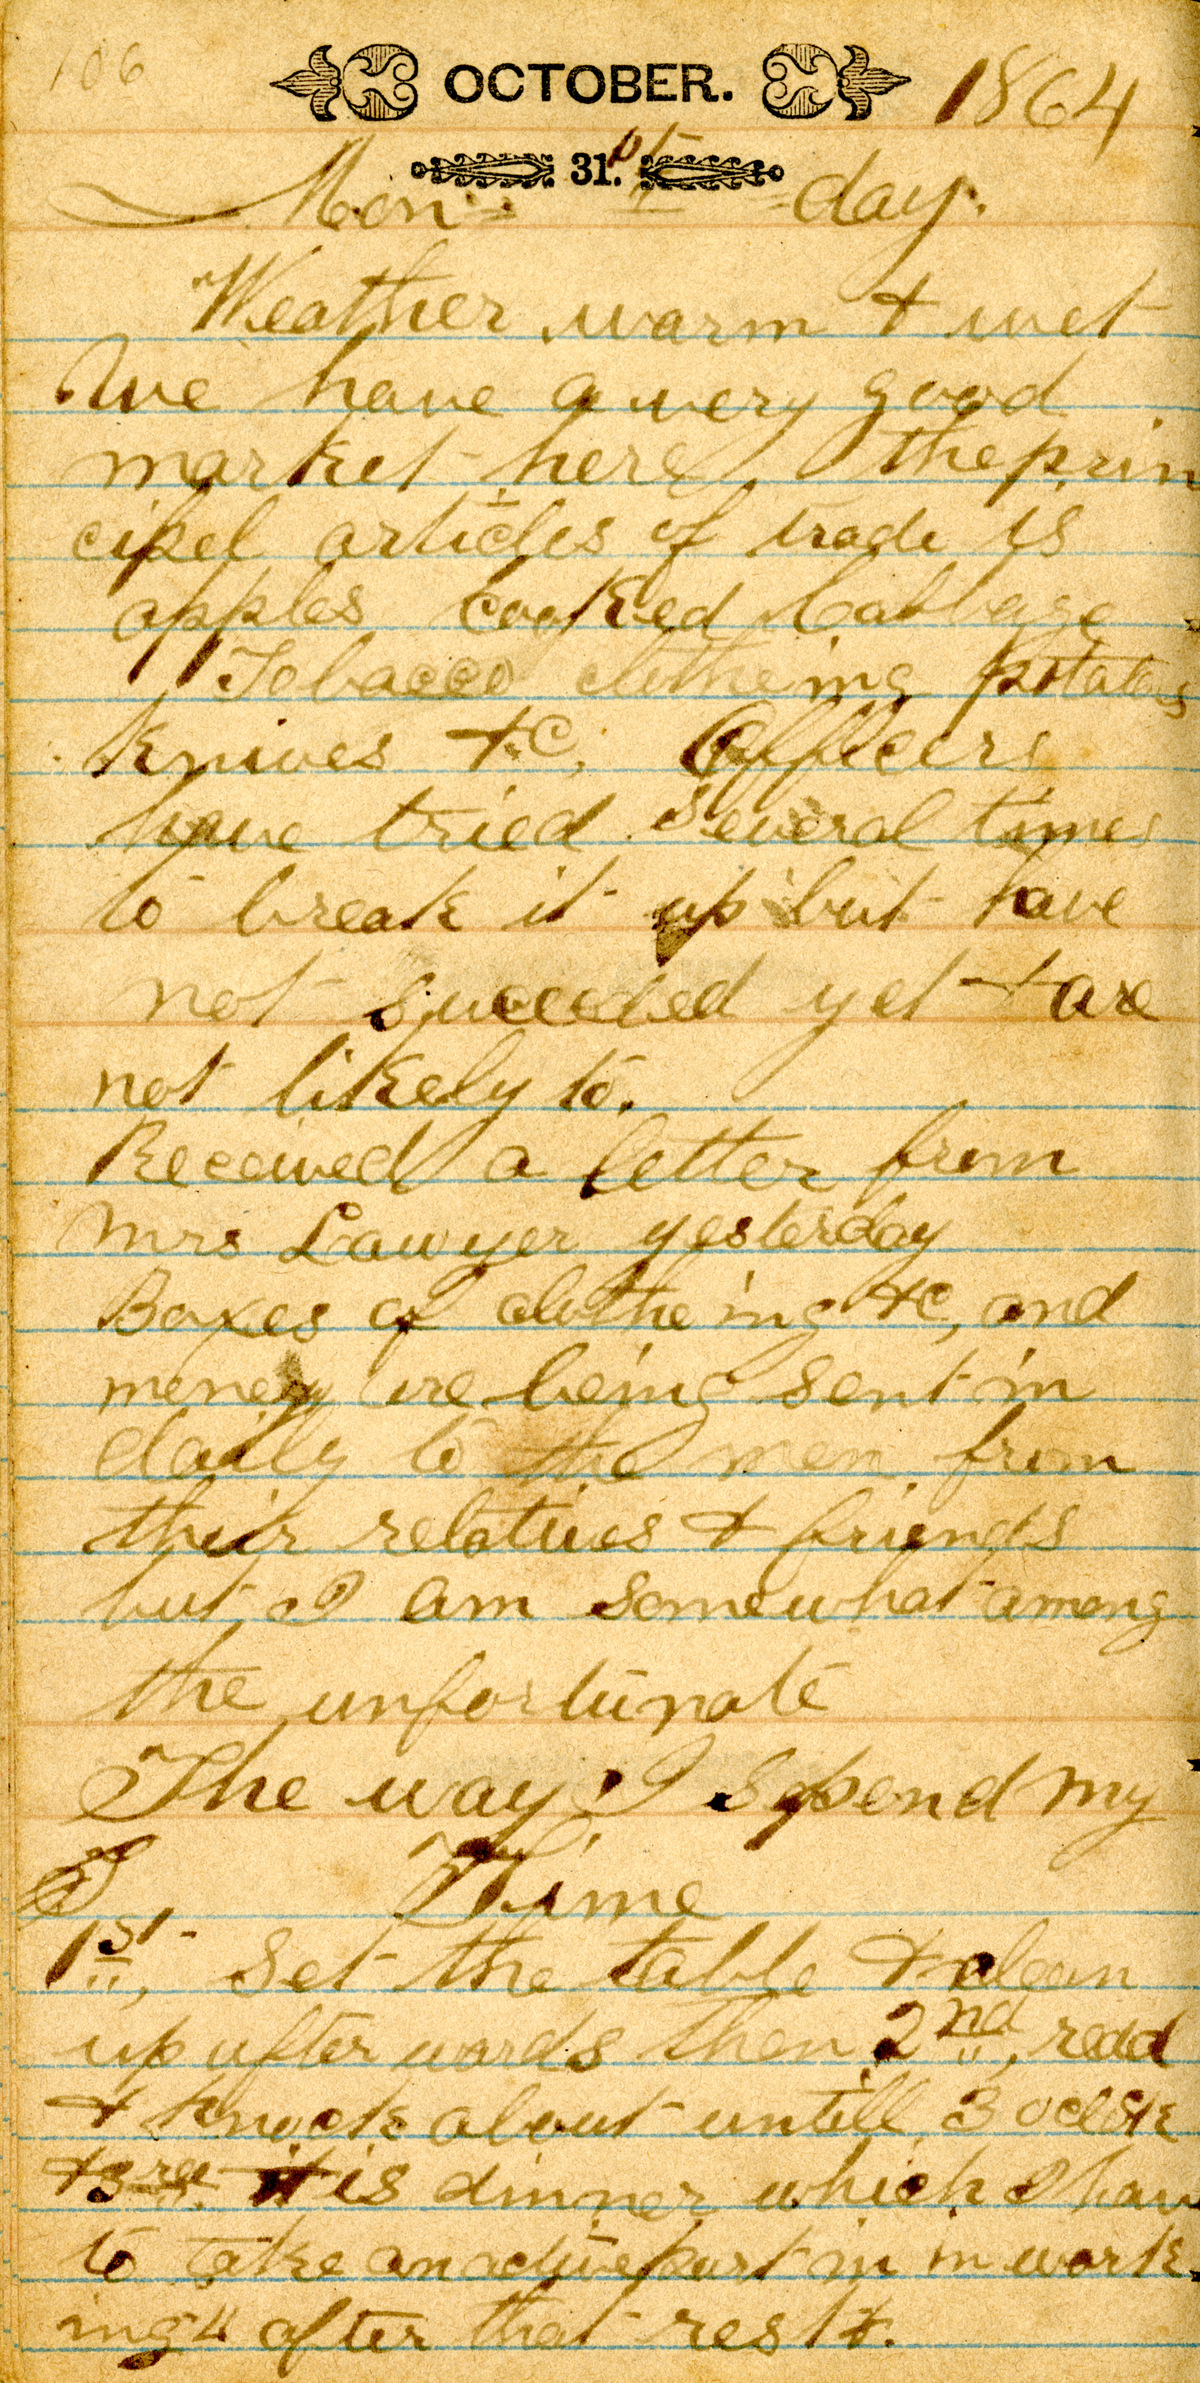 106
OCTOBER. 1864
31.st
Mon= =day.
Weather warm & wet
We have a very good
market here, the prin
cipel articles of trade is
apples cooked cabbage
Tobacco clotheing potatoes
knives &c, Officers
have tried several times
to break it up but have
not succeeded yet & are
not likely to.
Received a letter from
Mrs Lawyer yesterday
Boxes of clotheing &c, and
money are being sent in
daily to the men from
their relatives & friends
but I am somewhat among
the unfortunate
The way I spend my
Time
1st, set the table & clean
up after wards then 2nd, read
& knock about untill 3 oclock
& 3rd it is dinner which I have
to take an active part in in work
ing 4 after that rest.